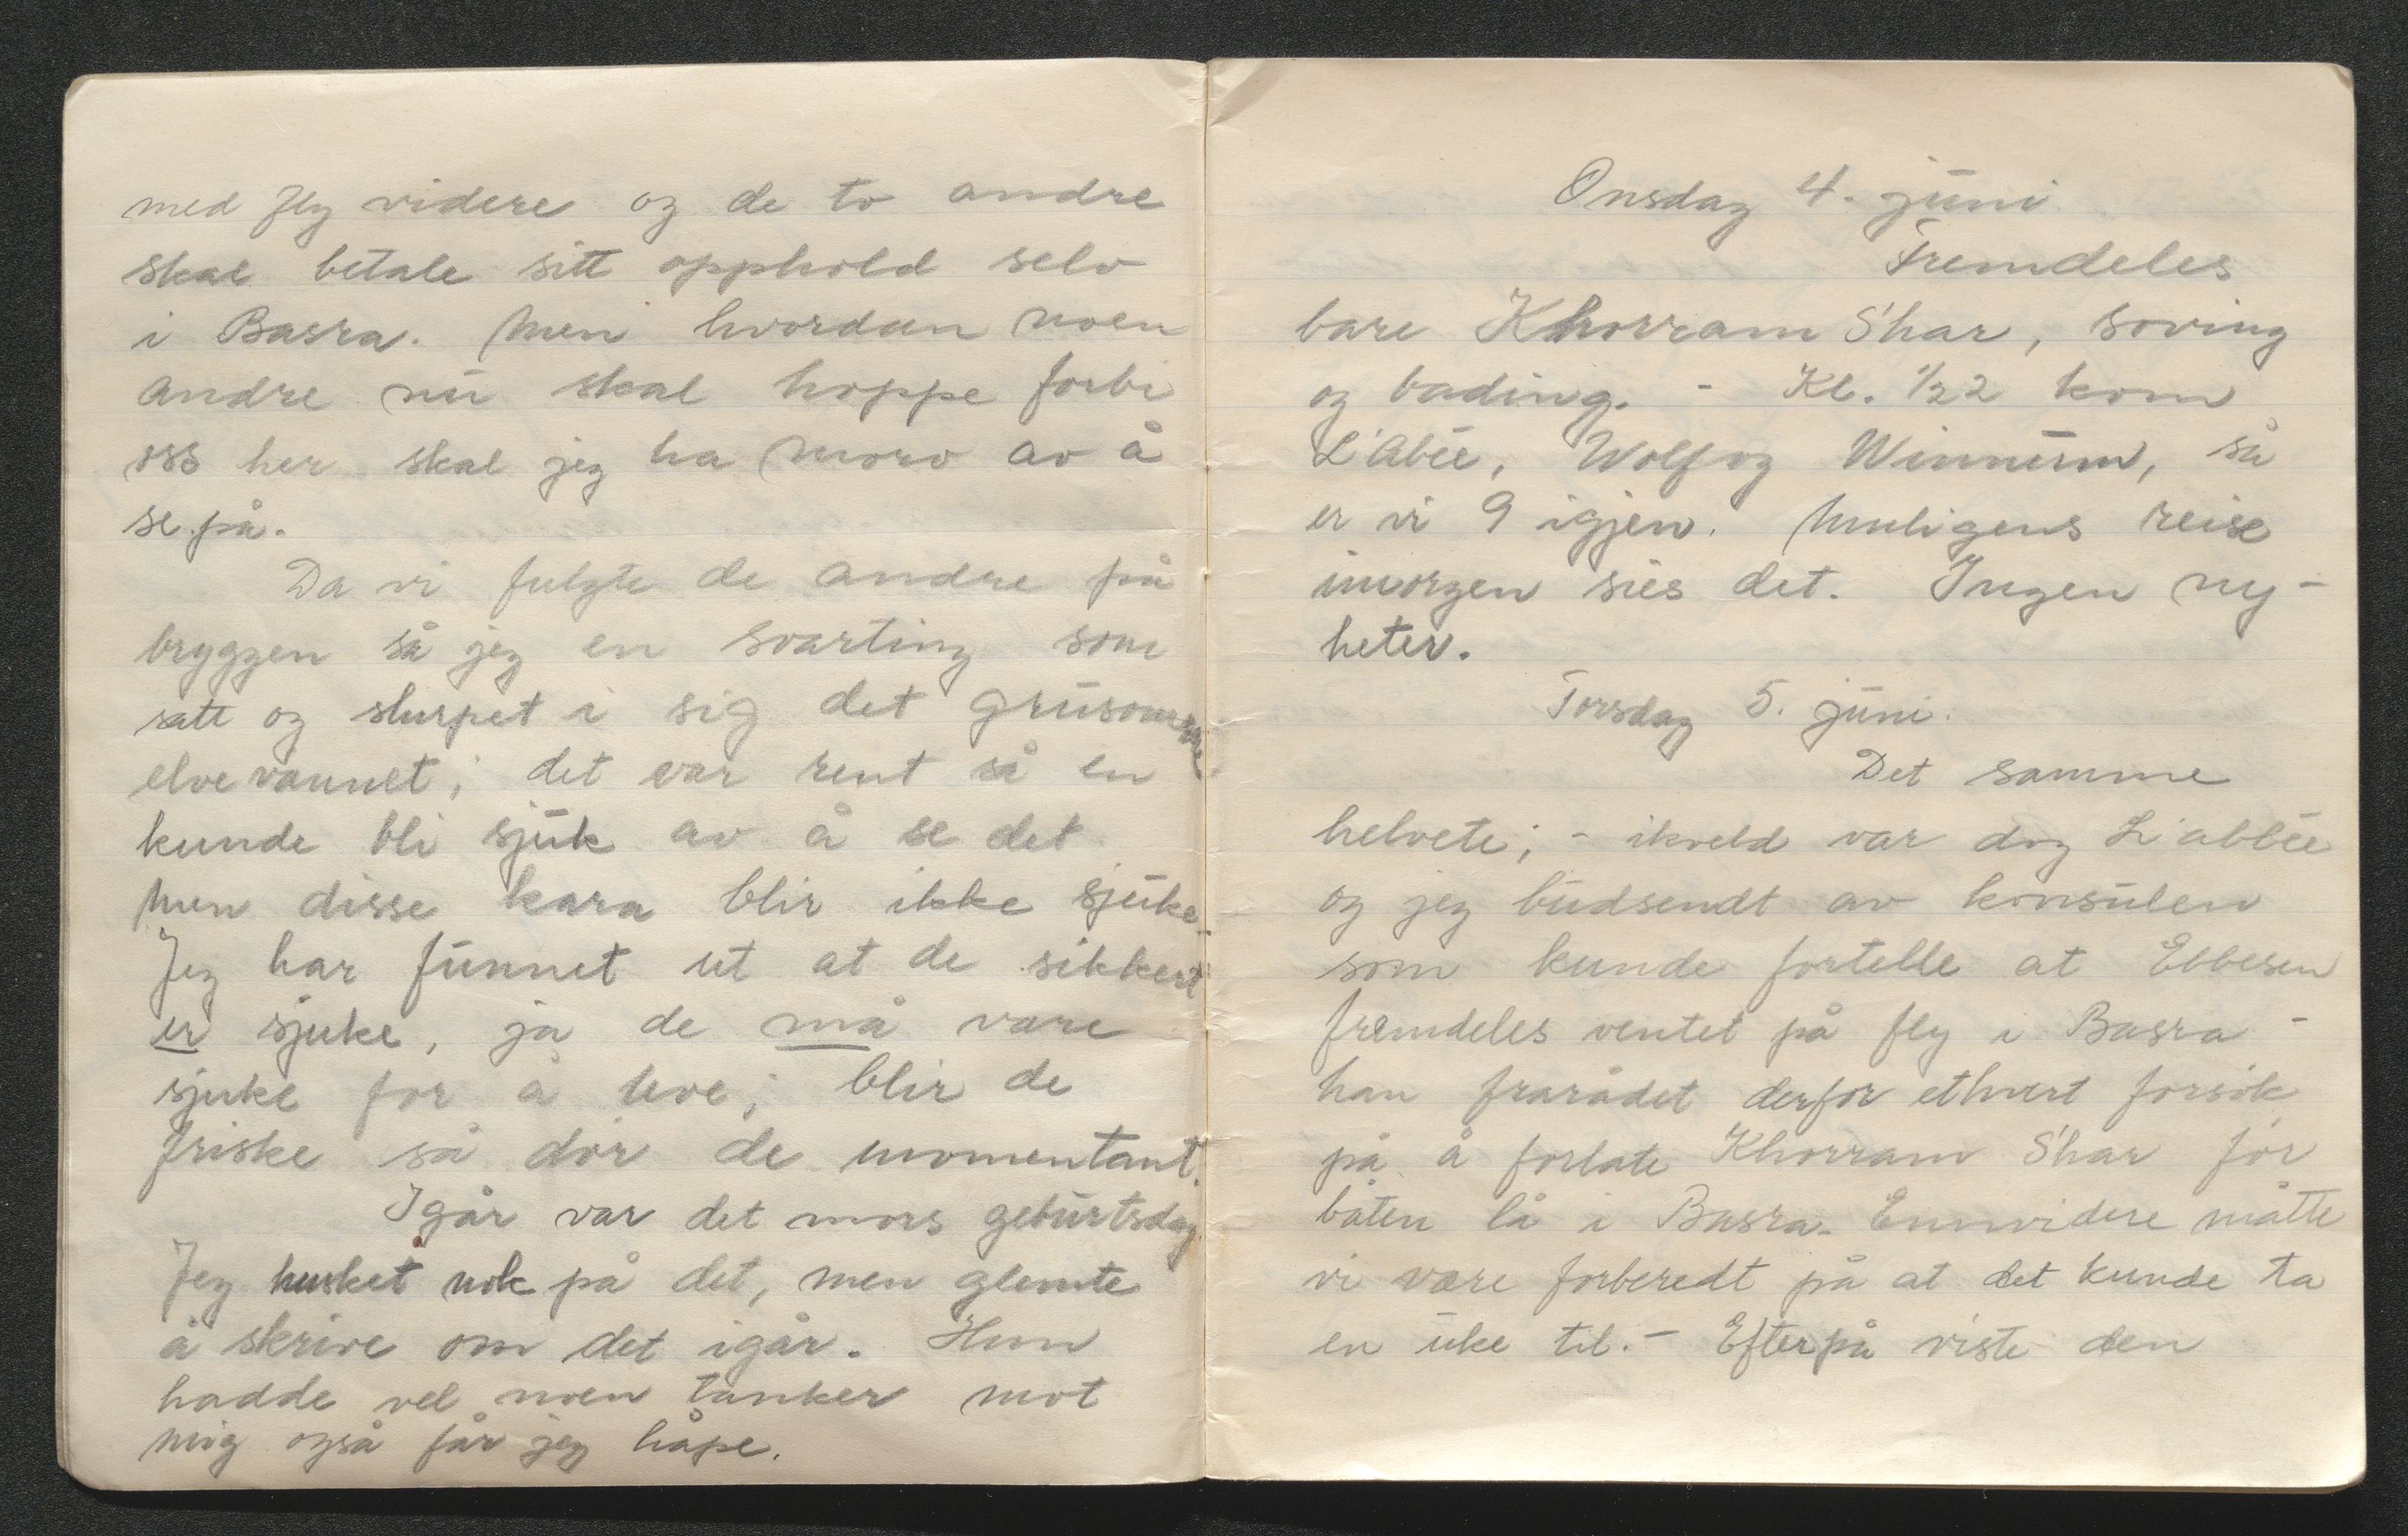 med fly videre og de to andre
skal betale sitt opphold selv
i Basra. Men hvordan noen
andre nu skal hoppe forbi
oss her skal jeg ha moro av å
se på.
Da vi fulgte de andre på
bryggen så jeg en svarting som
satt og slurpet i sig det grusomme
elvevannet; det var rent så en
kunde bli sjuk av å se det
men disse kara blir ikke sjuke.
Jeg har funnet ut at de sikkert
er sjuke, ja de må være
sjuke for å leve; blir de
friske så dör de momentant.
Igår var det mors geburtsdag.
Jeg husket nok på det, men glemte
å skrive om det igår. Hun
hadde vel noen tanker mot
mig også får jeg håpe.
Onsdag 4. juni.
Fremdeles
bare Khorram S'har, soving
og bading. - Kl. 1/22 kom
L'Abée, Wolf og Winnem, så
er vi 9 igjen. Muligens reise
imorgen sies det. Ingen ny-
heter.
Torsdag 5. juni.
Det samme
helvete; - ikveld var dog L'abbée
og jeg budsendt av konsulen
som kunde fortelle at Ebbesen
fremdeles ventet på fly i Basra -
han frarådet derfor ethvert forsök
på å forlate Khorram S'har för
båten lå i Basra. Ennvidere måtte
vi være forberedt på at det kunde ta
en uke til. - Efterpå viste den